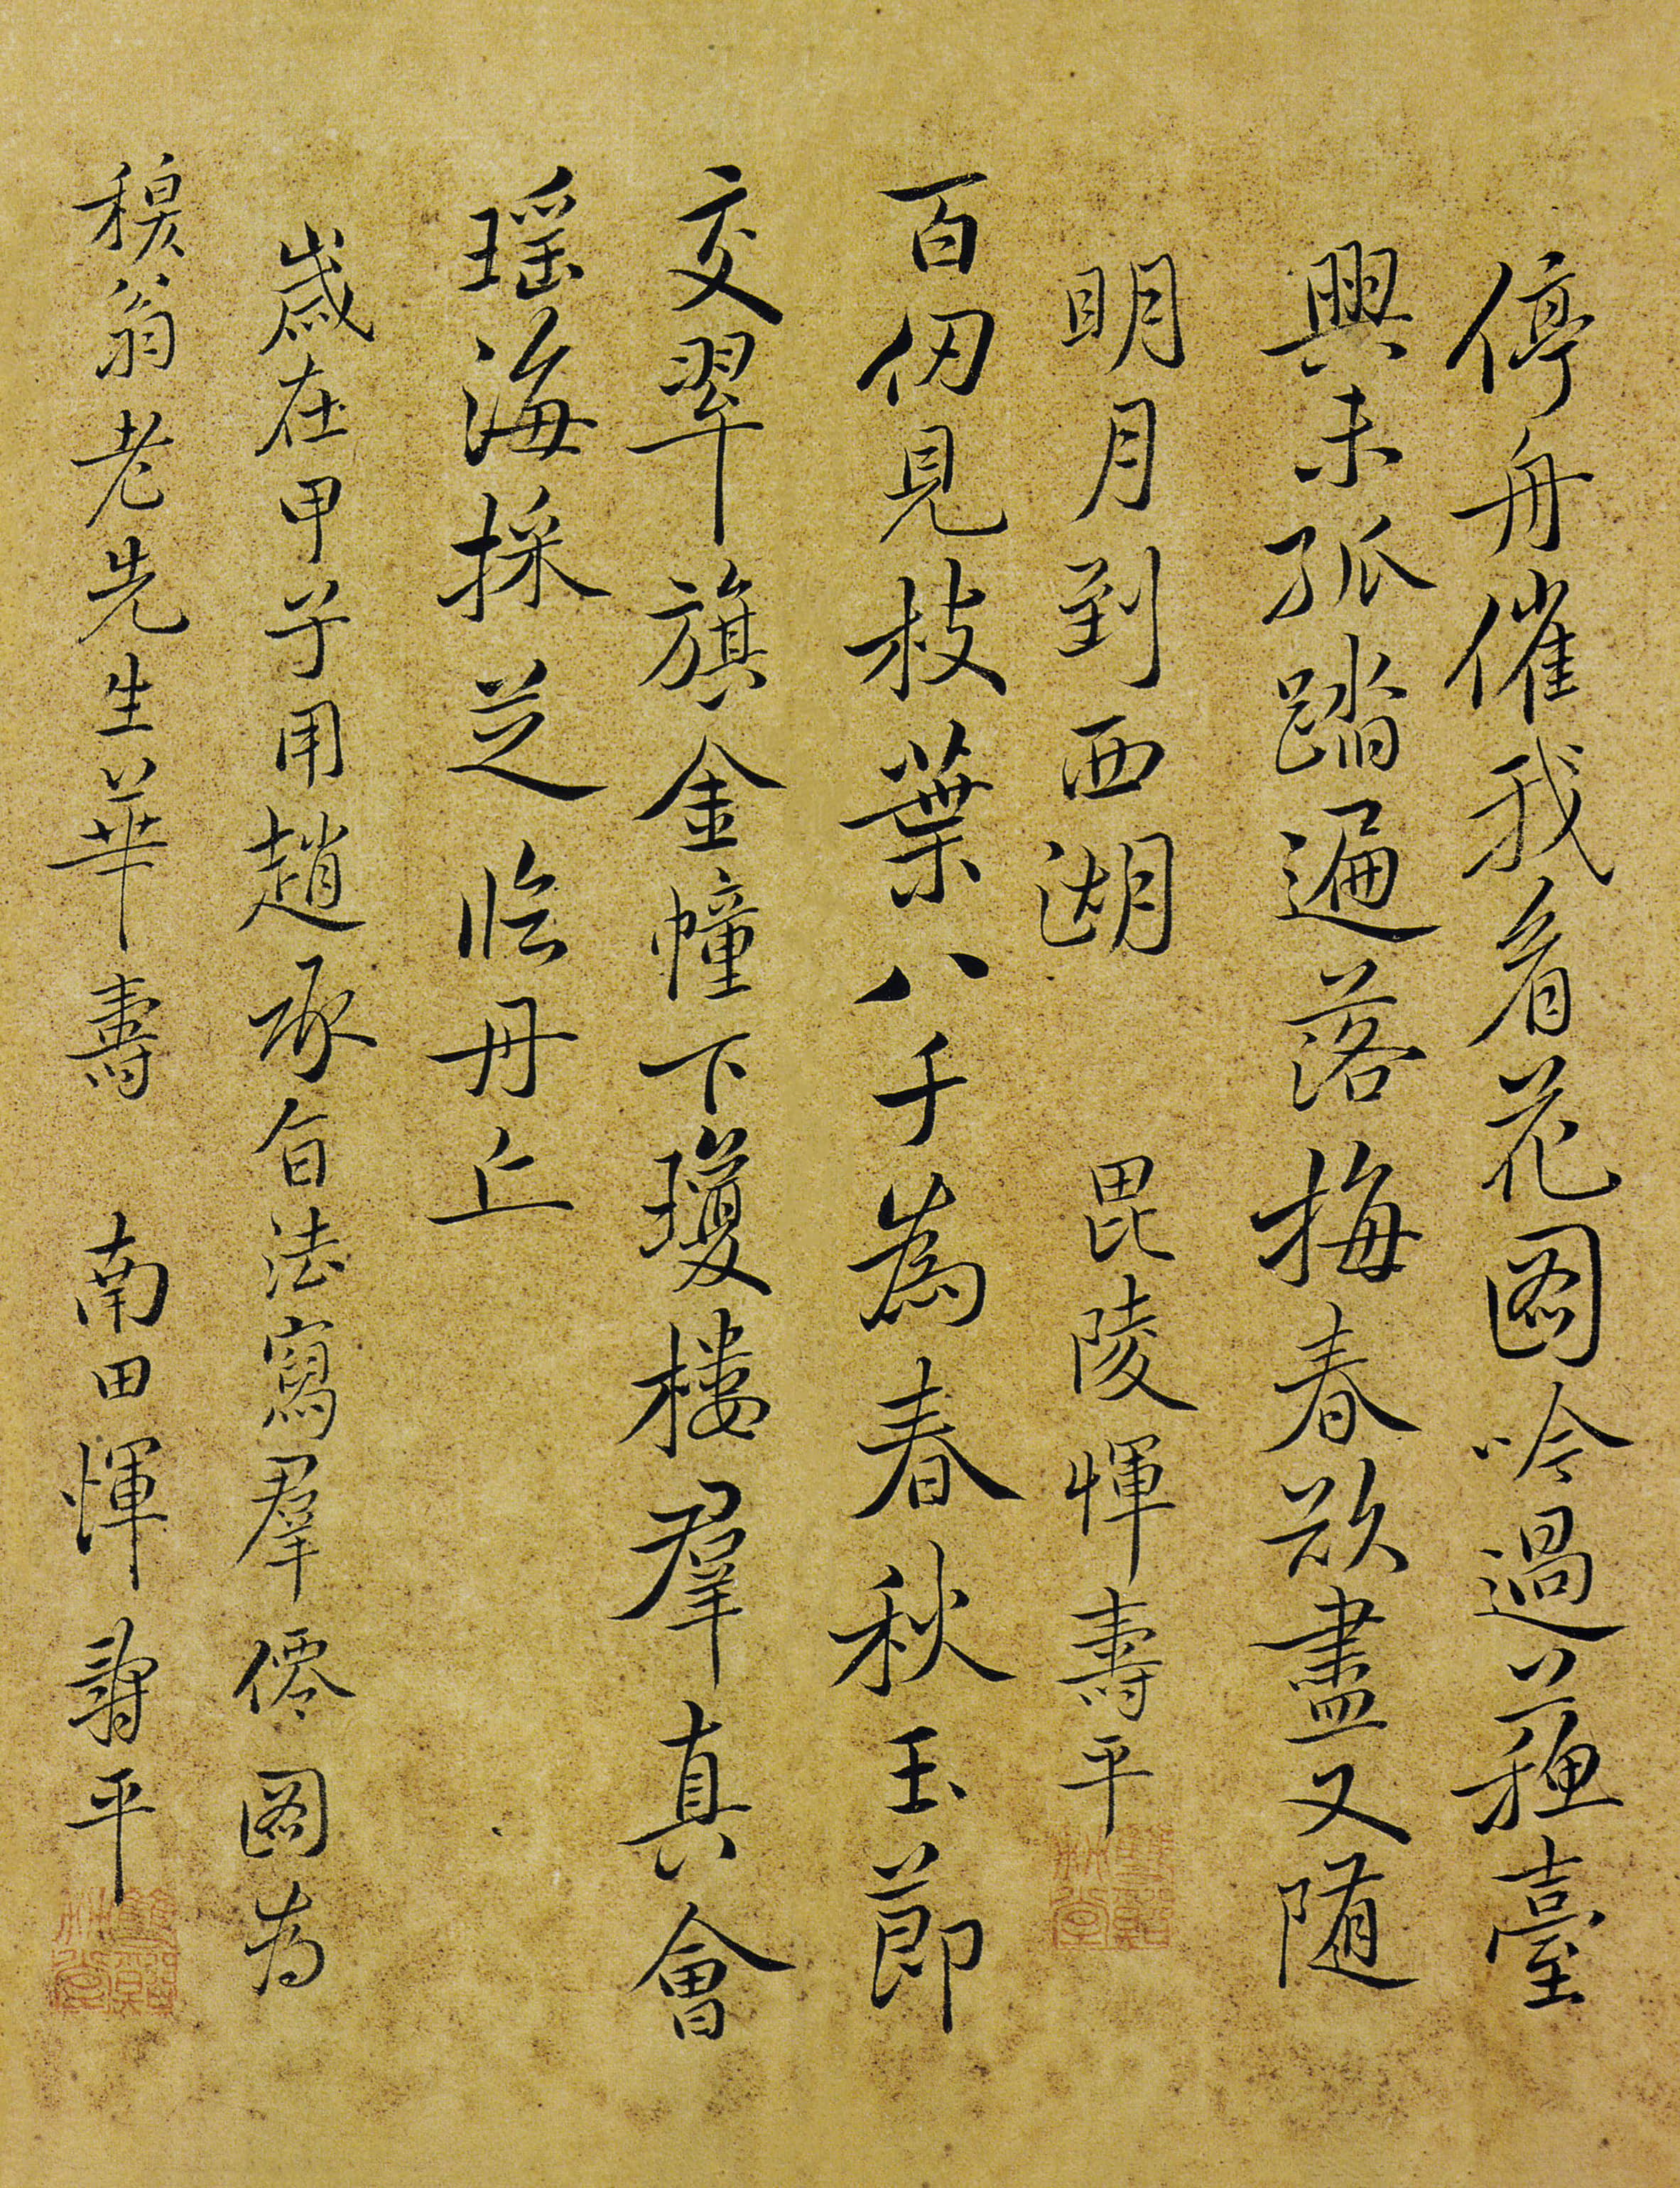 停舟催我看花圖吟過蘇臺
興未孤踏遍落梅春欲盡又隨
明月到西湖 毘陵惲壽平
百仞見枝葉八千為春秋玉節
交翠旗金幢下瓊樓羣真會
瑶海採芝臨丹丘
歲在甲子用趙承旨法寫羣僊圖為
翁老先生華壽 南田惲壽平